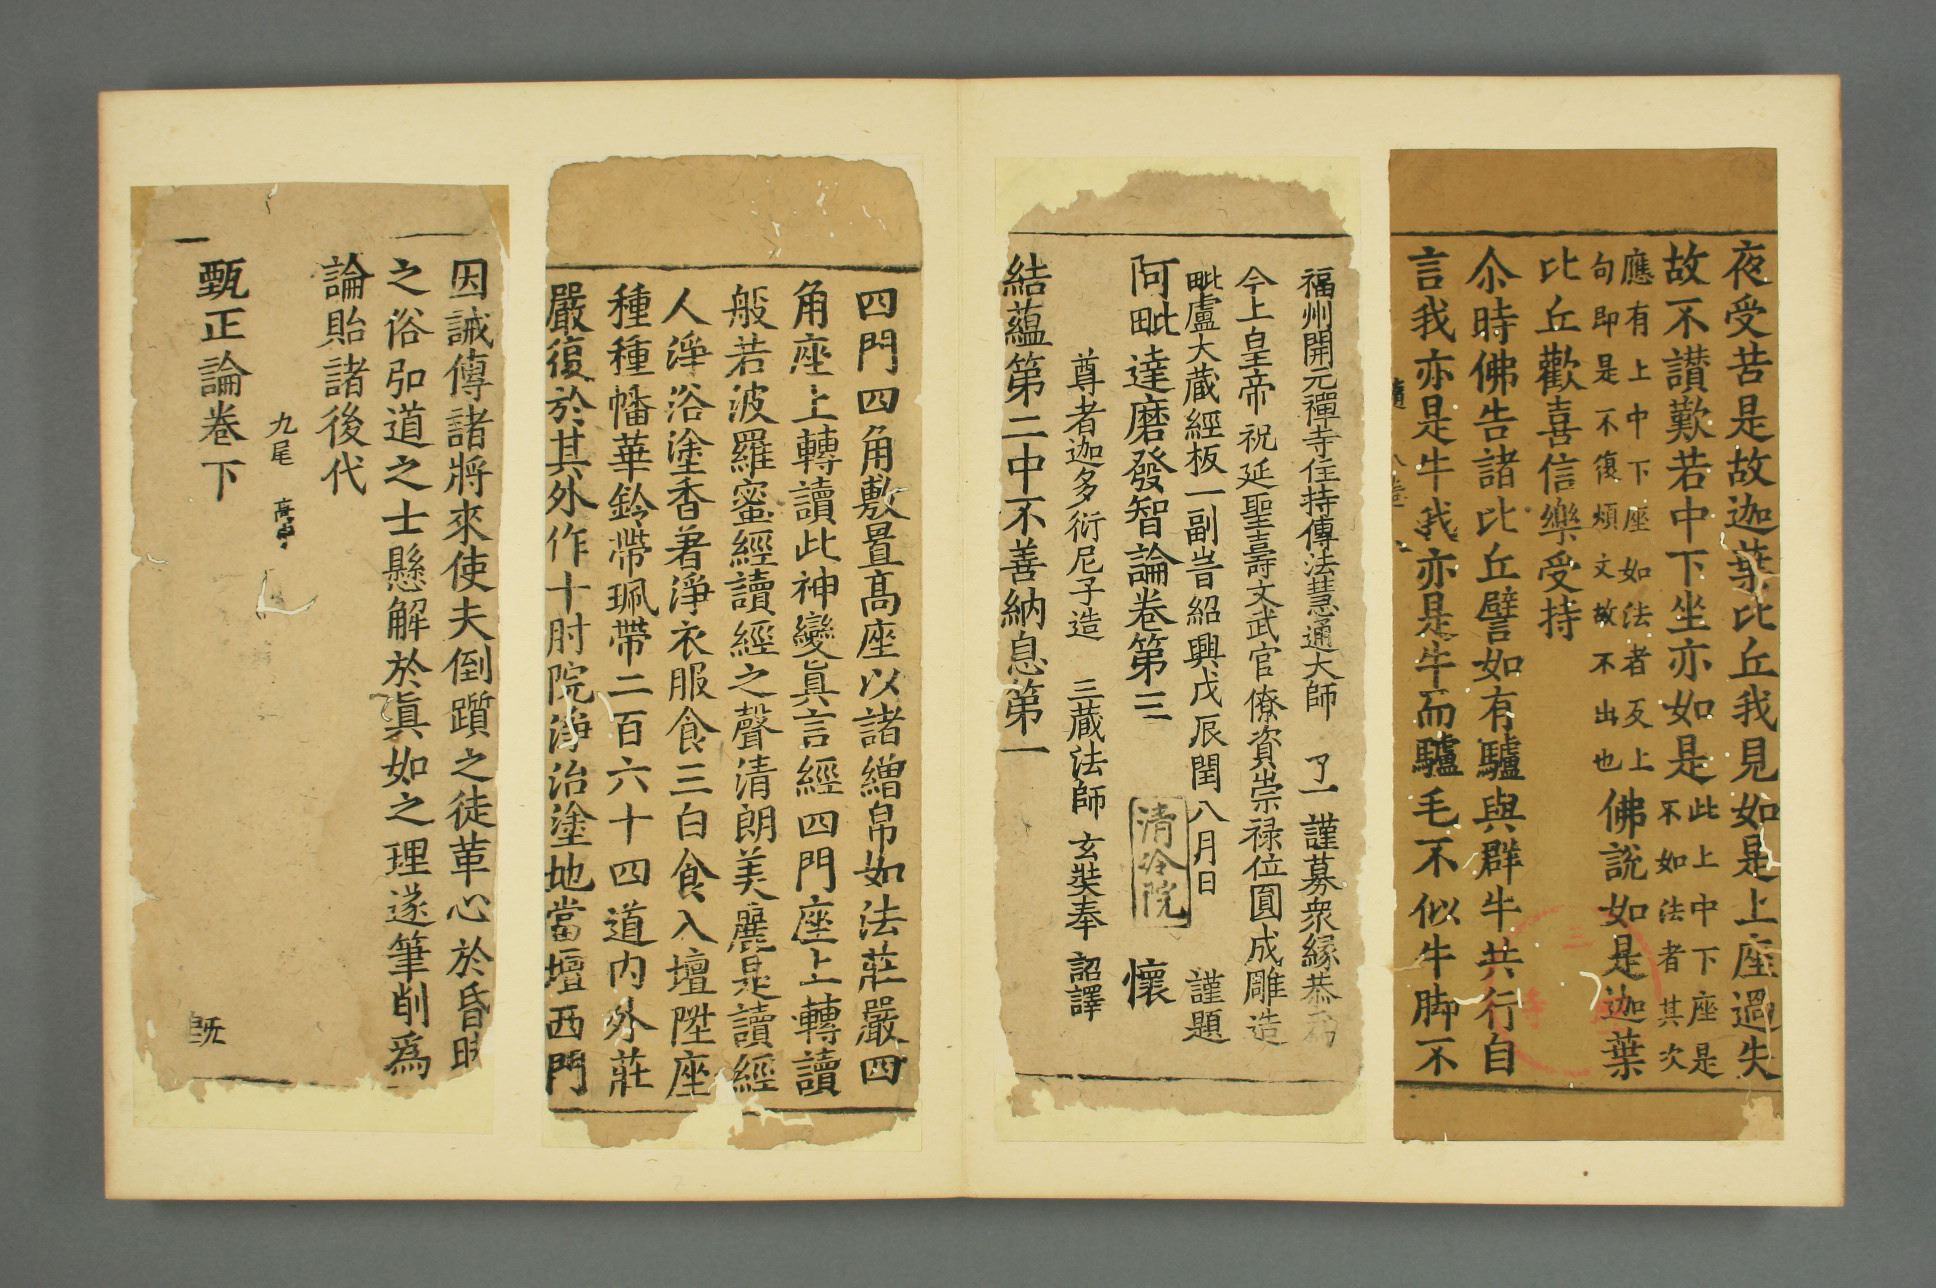 夜受苦是故迦葉比丘我見如是上座過失
故不讃歎若中下坐亦如是此上中下座是
不如法者其次
應有上中下座如法者反上
句即是不復煩文故不出也
佛說如是迦葉
比丘歡喜信樂受持
尒時佛告諸比丘譬如有驢與群牛共行自
言我亦是牛我亦是牛而驢毛不似牛脚不
福州開元禪寺住持傳法慧通大師 了一 謹募衆縁恭爲
今上皇帝祝延聖壽文武官僚資崇禄位圓成雕造
毗盧大藏經板一副旹紹興戊辰閏八月日 謹題
阿毗達磨發智論卷第三 懷
清泠院
尊者迦多衍尼子造 三藏法師 玄奘奉 詔譯
結蘊第二中不善納息第一
四門四角敷置髙座以諸繒帛如法莊嚴四
角座上轉讀此神變眞言經四門座上轉讀
般若波羅蜜經讀經之聲清朗美麗是讀經
人淨浴塗香著淨衣服食三白食入壇陞座
種種幡華鈴帶珮帶二百六十四道內外莊
嚴復於其外作十肘院淨治塗地當壇西門
因誡傳諸將來使夫倒躓之徒革心於昏昧
之俗弘道之士懸解於眞如之理遂筆削爲
論貽諸後代
九尾
甄正論卷下
既